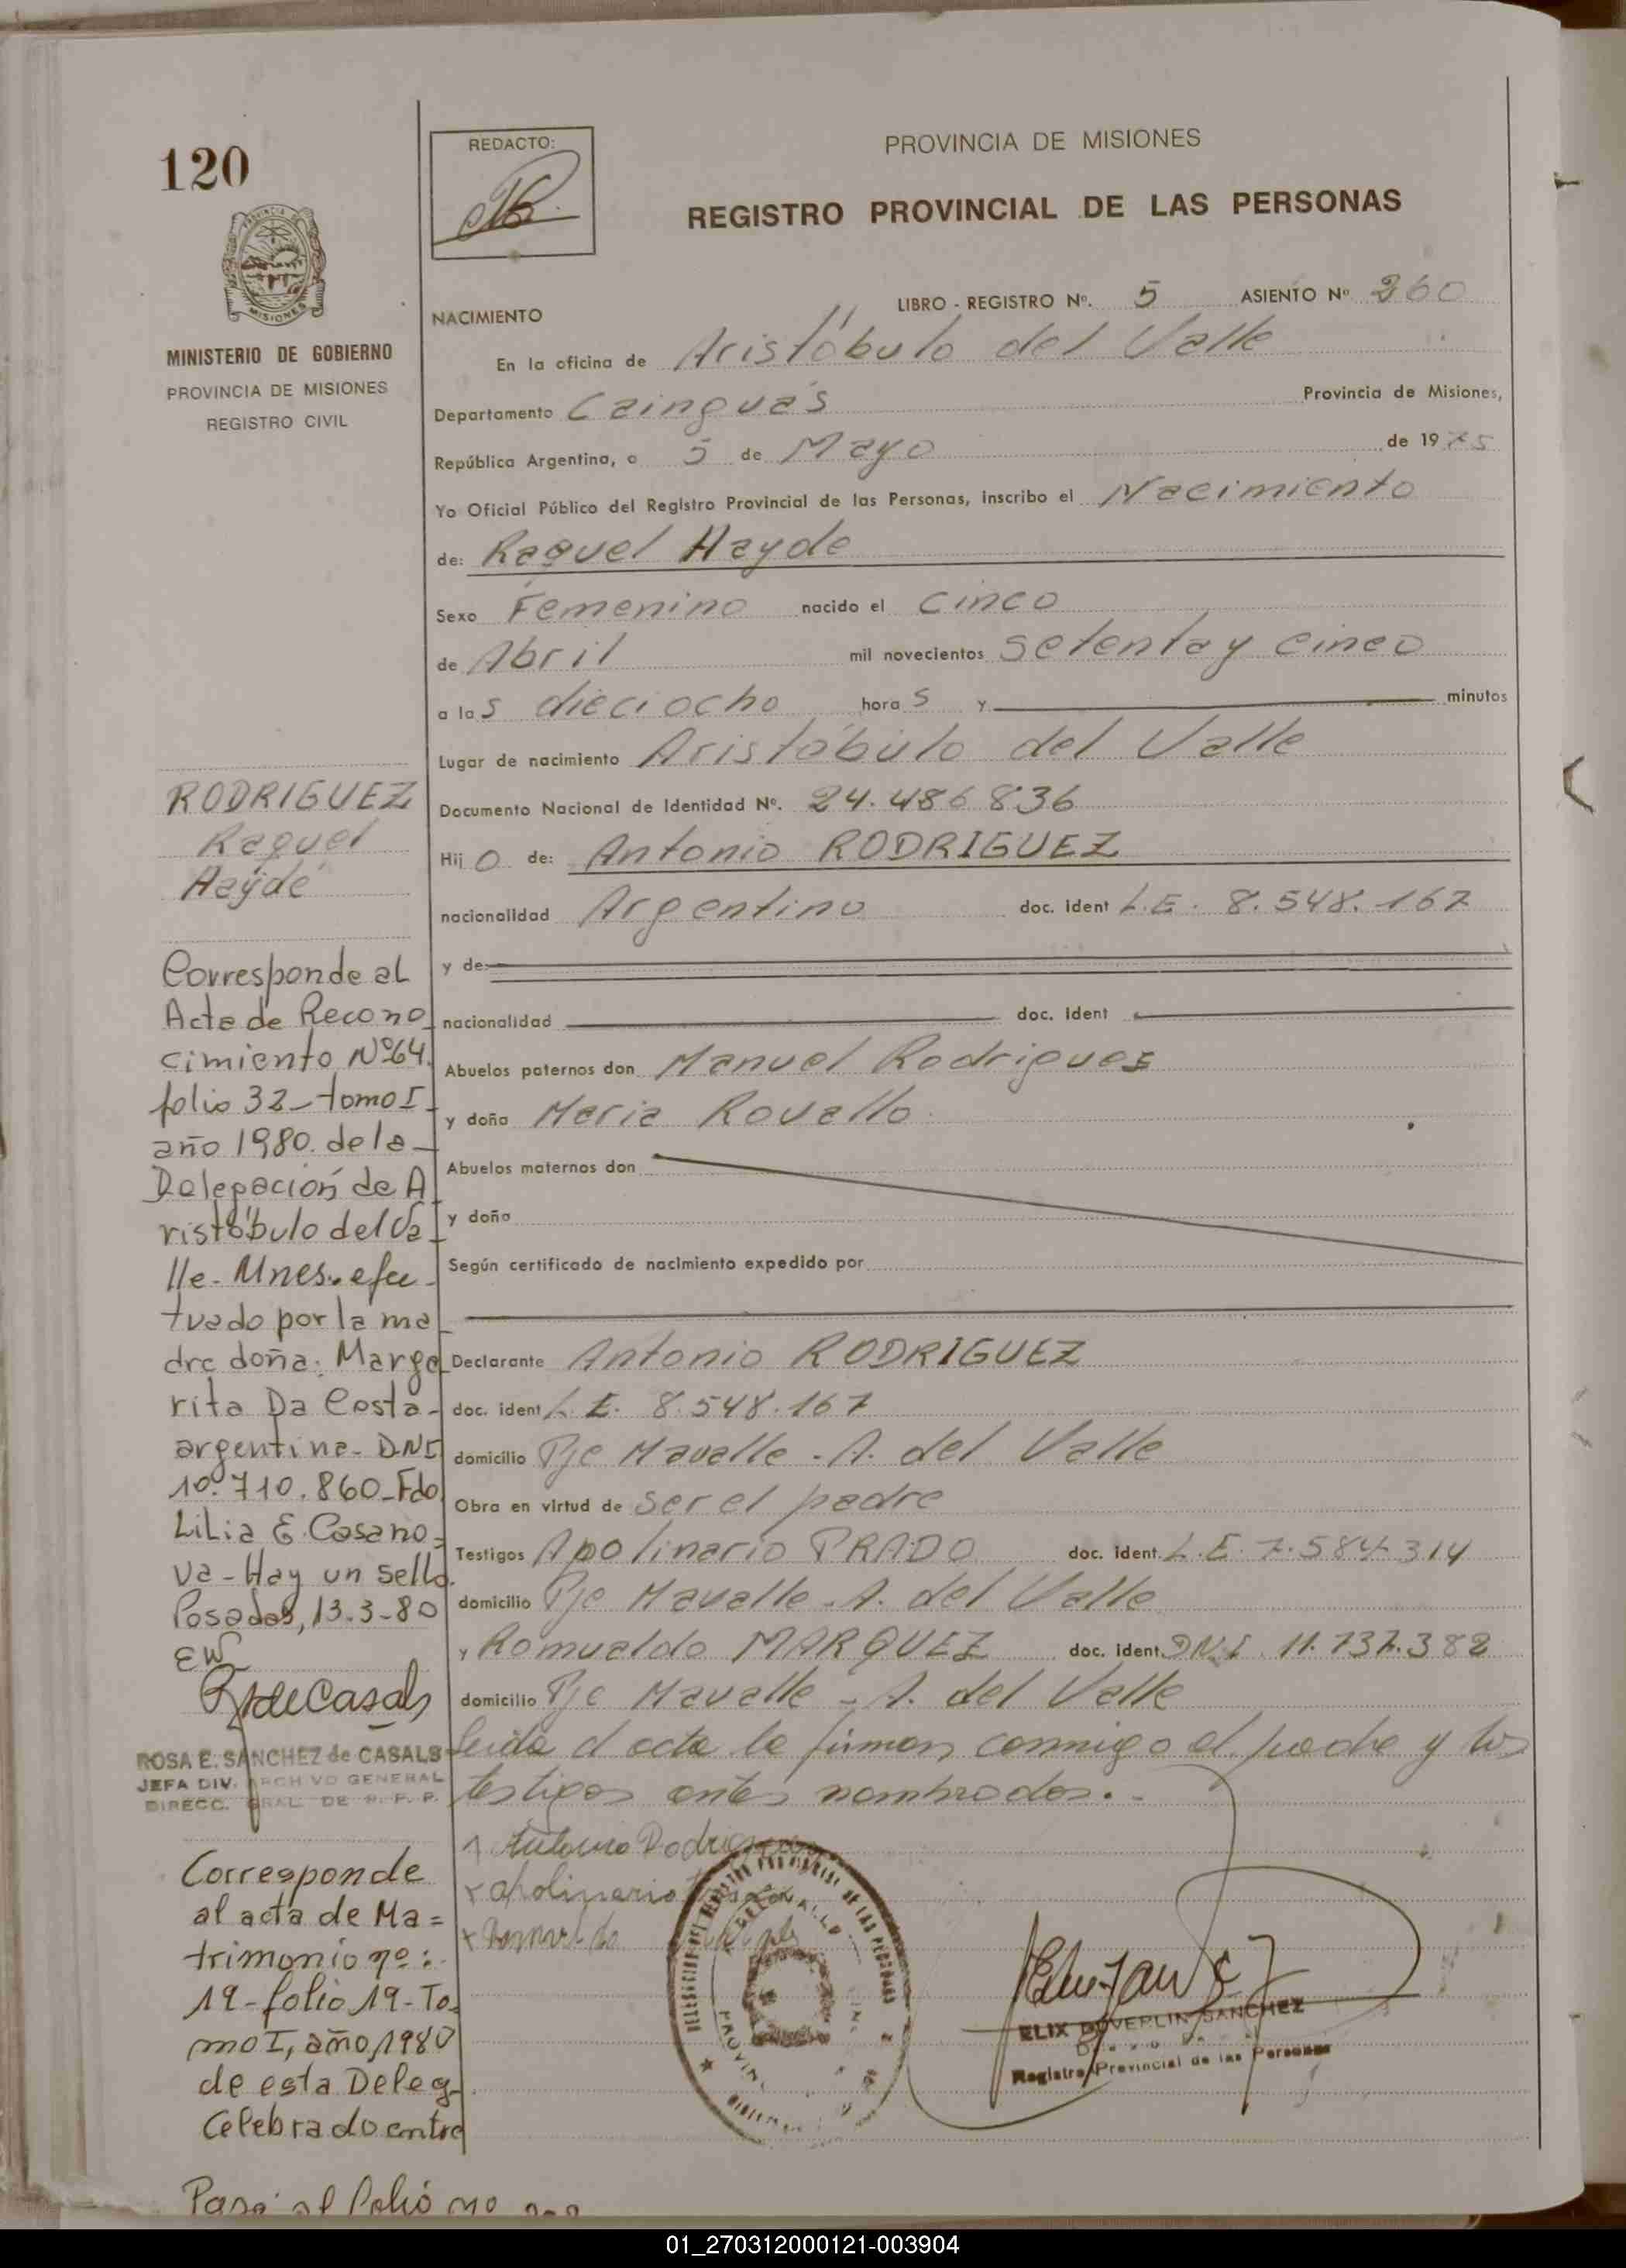 120
REDACTO:
PROVINCIA DE MISIONES
REGISTRO PROVINCIAL DE LAS PERSONAS
MISIONES
MINISTERIO DE GOBIERNO
PROVINCIA DE MISIONES
REGISTRO CIVIL
LIBRO - REGISTRO Nº. 5 ASIENTO Nº 260
NACIMIENTO
En la oficina de Aristóbulo del Valle
Departamento Cainguás Provincia de Misiones,
República Argentina, a 5 de Mayo de 1975
Yo Oficial Público del Registro Provincial de las Personas, inscribo el Nacimiento
de: Raquel Hayde
Sexo Femenino nacido el cinco
de Abril mil novecientos setenta y cinco
a las dieciocho horas y minutos
Lugar de nacimiento Aristóbulo del Valle
Documento Nacional de Identidad Nº. 24.486836
Hijo de: Antonio RODRIGUEZ
nacionalidad Argentino doc. ident L.E. 8.548.167
y de:
nacionalidad doc. ident
Abuelos paternos don Manuel Rodrigues
y doña Maria Rovallo
Abuelos maternos don
y doña
Según certificado de nacimiento expedido por
Declarante Antonio RODRIGUEZ
doc. ident L.E. 8.548.167
domicilio Pje Mavalle - A. del Valle
Obra en virtud de ser el padre
Testigos Apolinario PRADO doc. ident. L.E. 7.584.314
domicilio Pje Mavalle - A. del Valle
y Romualdo MARQUEZ doc. ident. DN.I. 11.737.382
domicilio Pje Mavalle - A. del Valle
Leida el acta la firman conmigo el padre y los
testigos antes nombrados.-
Antonio Rodrigues
Apolinario
ELIX SANCHEZ
Registro Provincial de las Personas
RODRIGUEZ
Raquel
Haydé
Corresponde al
Acta de Recono
cimiento Nº64.
folio 32-tomo I-
año 1980. de la
Delegación de A
ristóbulo del Va
lle-Mnes. efec-
tuado por la ma
dre doña: Marga
rita Da Costa-
argentina-DNI
10.710.860-Fdo
Lilia E. Casano=
va-Hay un sello.
Posadas, 13.3-80
EW
RdeCasals
ROSA E. SANCHEZ de CASALS
JEFA DIV. ARCHIVO GENERAL
DIRECC. GRAL. DE R. P. P.
Corresponde
al acta de Ma=
trimonio nº:
19-folio 19-To
mo I, año 1980
de esta Deleg
Celebrado entre
Pasa al folio nº
01_270312000121-003904